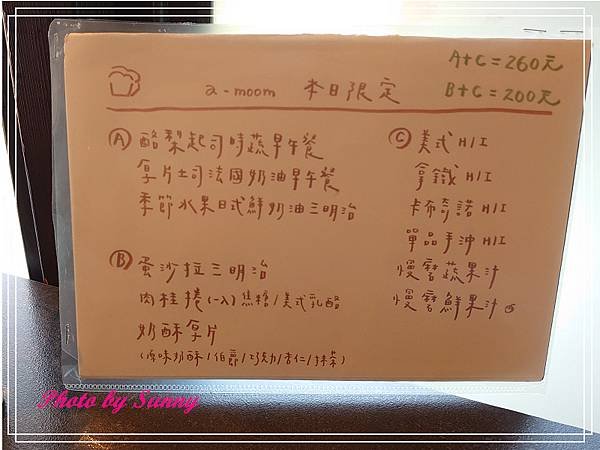 a-moom 本日限定
A+C=260元
B+C=200元
Ⓐ 酪梨起司時蔬早午餐
厚片土司法國奶油早午餐
季節水果日式鮮奶油三明治
Ⓑ 蛋沙拉三明治
肉桂捲(一入)焦糖/美式乳酪
奶酥厚片
(原味奶酥/伯爵/巧克力/杏仁/抹茶)
Ⓒ 美式 H/I
拿鐵 H/I
卡布奇諾 H/I
單品手沖 H/I
慢磨蔬果汁
慢磨鮮果汁
Photo by Sunny